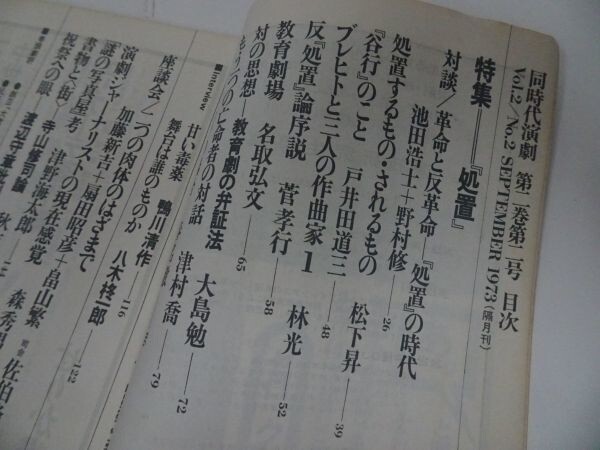 同時代演劇 第二巻第二号 目次
Vol.2/No.2 SEPTEMBER 1973(隔月刊)
特集——『処置』
対談/革命と反革命——『処置』の時代
池田浩士+野村修——26
処置するもの・されるもの 松下昇——39
『谷行』のこと 戸井田道三——48
ブレヒトと三人の作曲家1 林光——52
反『処置』論序説 菅孝行——58
教育劇場 名取弘文——65
対の思想
教育劇の弁証法 大島勉——72
の対話 津村喬——79
■Interview
甘い毒薬 鴨川清作
舞台は誰のものか 八木柊一郎——116
座談会/二つの肉体のはざまで
加藤新吉+扇田昭彦+畠山繁
演劇ジャーナリストの現在感覚——122
謎の写真屋考 津野海太郎
書物と〈街〉
祝祭への眼 寺山修司論